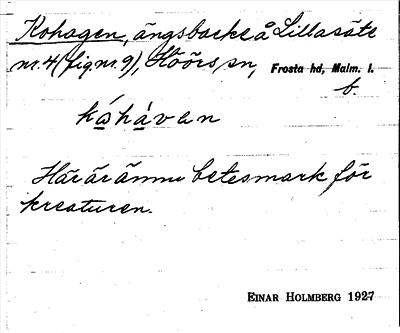 Kohagen, ängsbacke å Lillasäte
nr. 4 (fig. nr. 9), Höörs sn, Frosta hd, Malm. l.
b.
kåhåvan
Här är ännu betesmark för
kreaturen.
EINAR HOLMBERG 1927